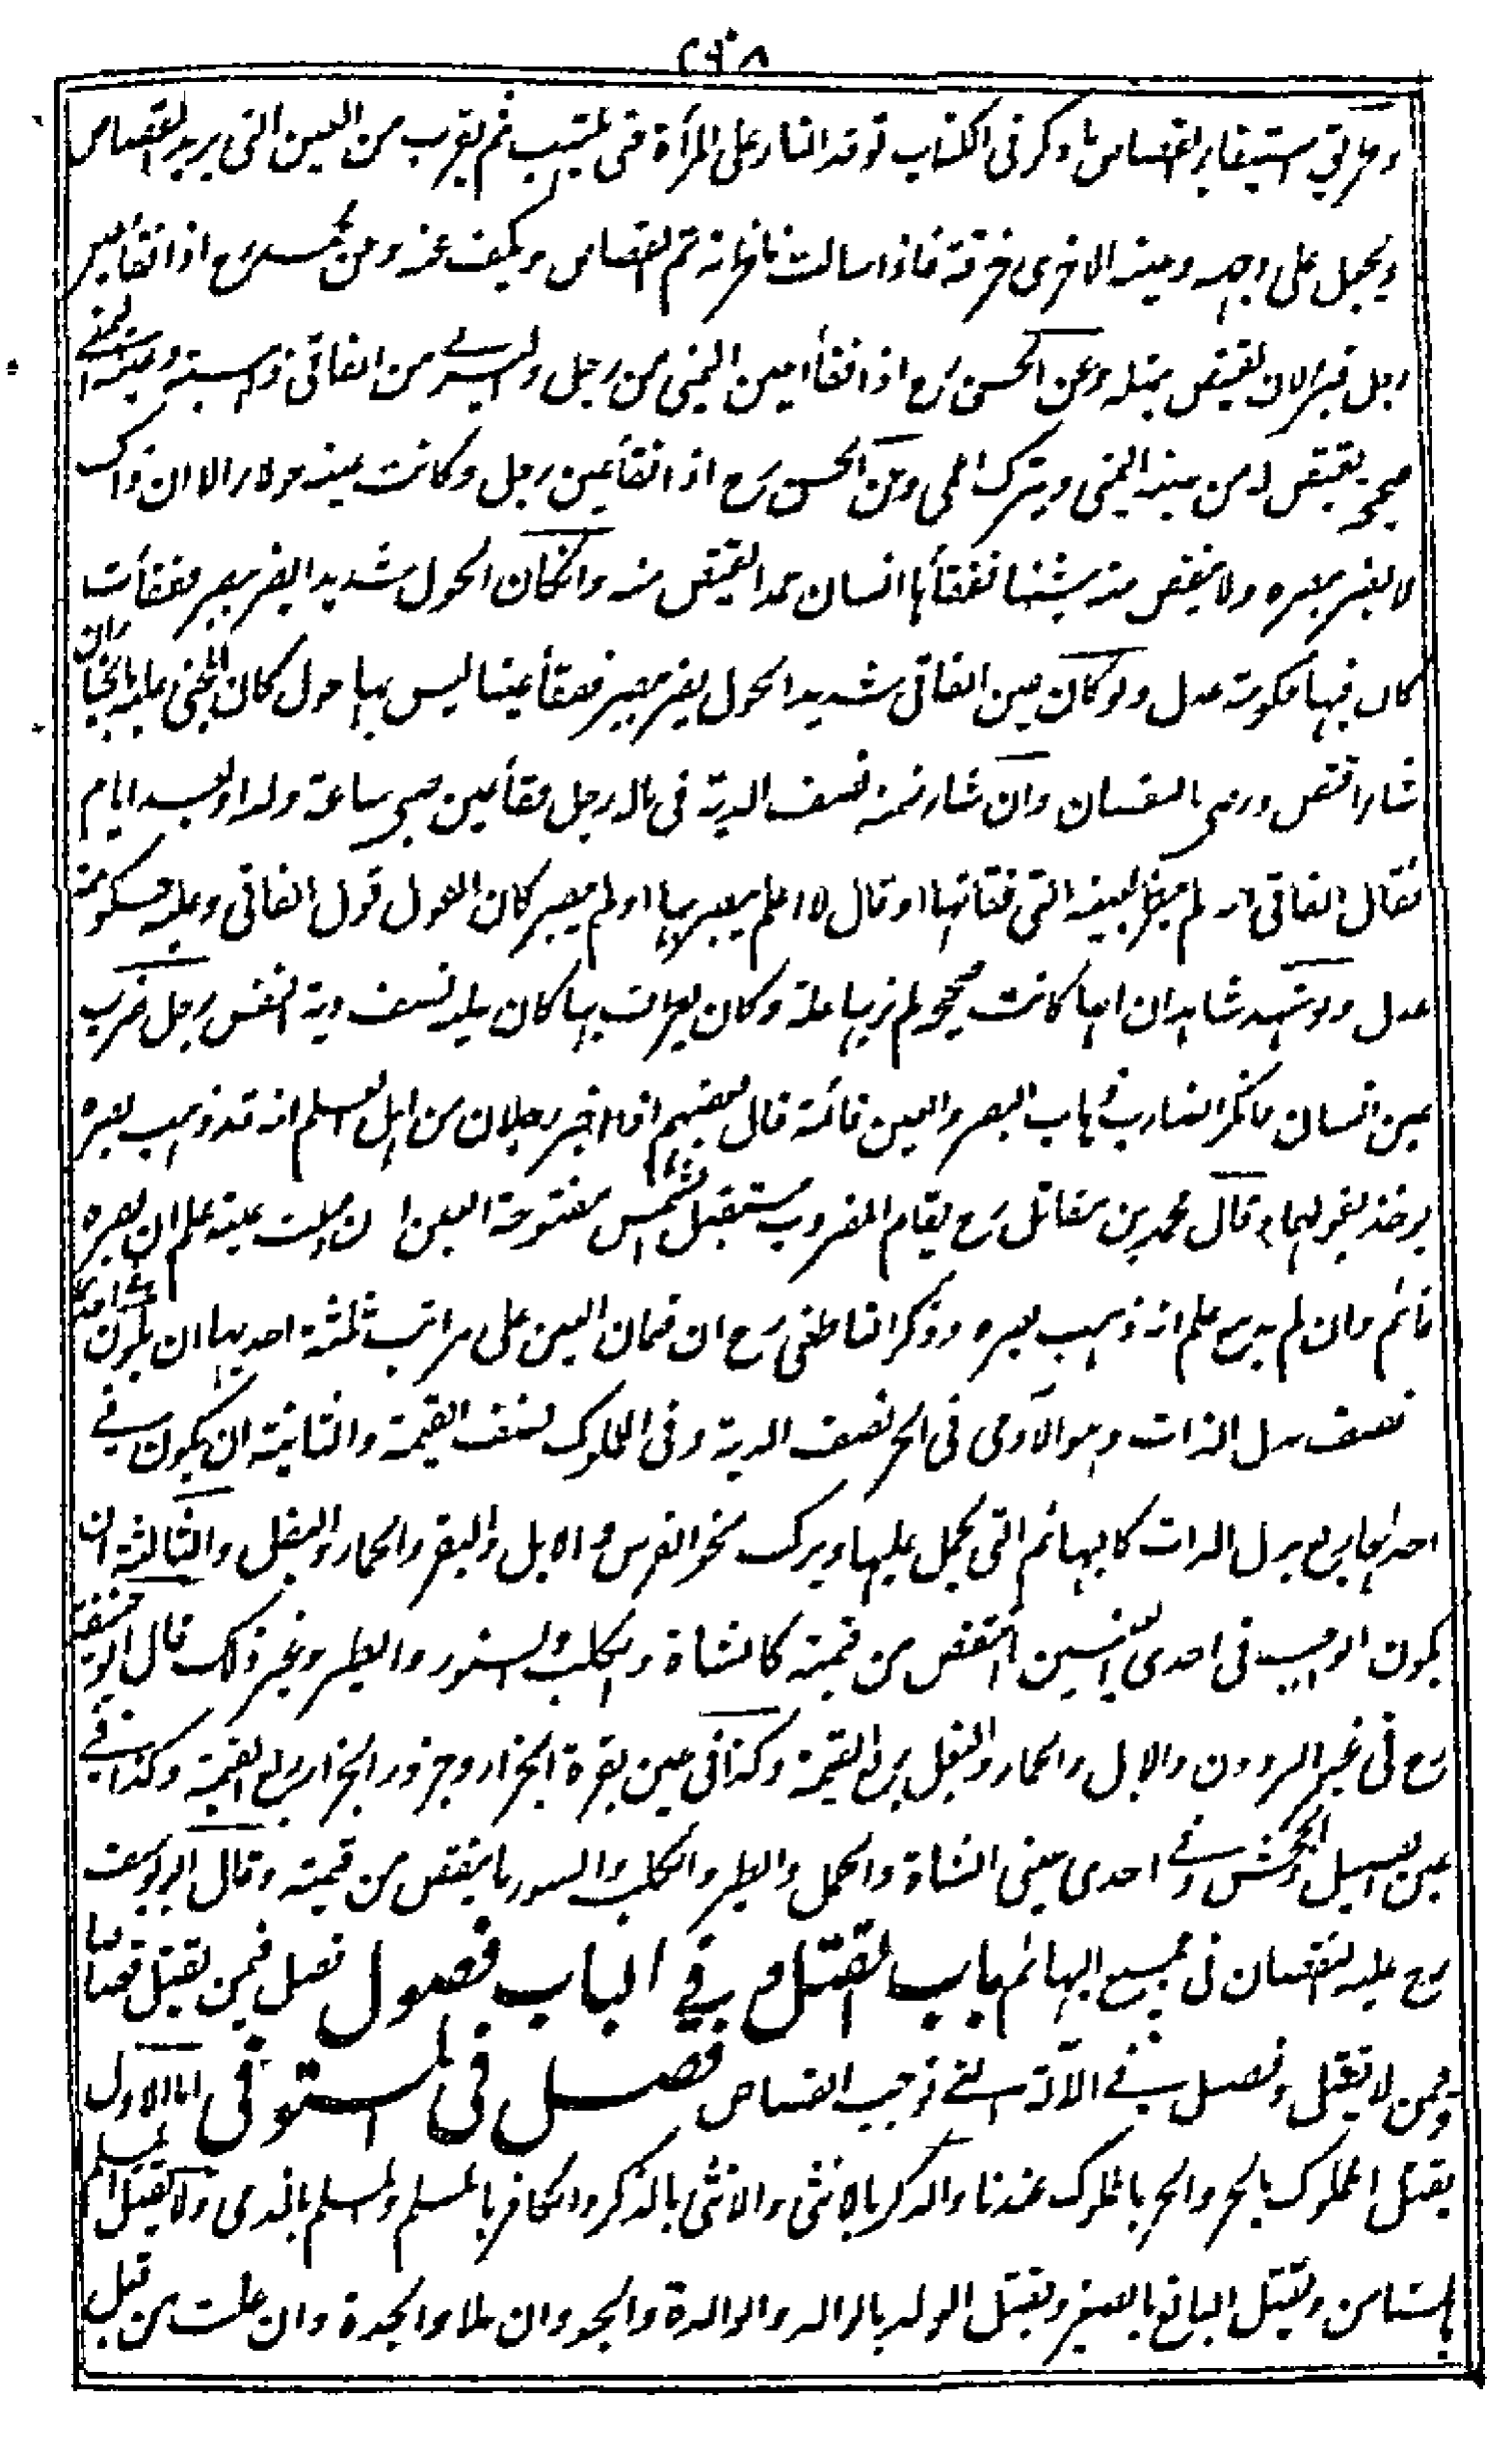 وطريق استيفاء القصاص ما ذكر في الكتاب توقد النار على المرآة حتى تلتهب ثم يقرب من العين التي يريد القصاص
ويجعل على وجهه وعينه الاخرى خرقة فاذا سالت ناظرته تم القصاص ويكف عنه وعن محمد رح اذا فقأ عين
رجل لان يقتص بمثله وعن الحسن رح اذا فقأ العين اليمنى من رجل واليسرى من الفاقئ ذاهبة وعينه اليمنى
صحيحة يقتص له من عينه اليمنى ويترك اعمى وعن الحسن رح اذا فقأ عين رجل وكانت عينه حولاء الا ان ذلك
لا يضر ببصره ولا ينقص منه شيئا ففقأها انسان عمدا يقتص منه وان كان الحول شديدا يضر ببصره ففقأت
كان فيها حكومة عدل ولو كان عين الفاقئ شديد الحول يضر ببصره ففقأ عينا ليس بها حول كان المجني عليه بالخيار ان
شاء اقتص ورضي بالنقصان وان شاء ضمنه نصف الدية في ماله رجل فقأ عين صبي ساعة ولد او بعد ايام
فقال الفاقئ انه لم يبصر بعينه التي فقأتها او قال لا اعلم يبصر بها او لم يبصر كان القول قول الفاقئ وعليه حكومة
عدل ولو شهد شاهدان انها كانت صحيحة لم نر بها علة وكان يطرف بها كان عليه نصف دية النفس رجل ضرب
عين انسان فانكر الضارب ذهاب البصر والعين قائمة قال بعضهم اذا اخبر رجلان من اهل العلم انه قد ذهب بصره
يؤخذ بقولهما وقال محمد بن مقاتل رح يقام المضروب مستقبل الشمس مفتوحة العين ان دمعت عينه علم ان بصره
قائم وان لم يدمع علم انه ذهب بصره وذكر الناطفي رح ان ضمان العين على مراتب ثلثة احديها ان يكون في احديهما
نصف بدل الذات وهو الآدمي في الحر نصف الدية وفي المملوك نصف القيمة والثانية ان يكون في
احديهما ربع بدل الذات كالبهائم التي يحمل عليها ويركب نحو الفرس والابل والبقر والحمار والبغل والثالثة ان
يكون الواجب في احدى العينين النقص من قيمته كالشاة والكلب والسنور والطير وغير ذلك قال ابو حنيفة
رح في عين البرذون والابل والحمار والبغل ربع القيمة وكذا في عين بقرة الجزار وجزور الجزار ربع القيمة وكذا في
عين الفصيل والجحش وفي احدى عيني الشاة والحمل والطير والكلب والسنور ما ينقص من قيمته وقال ابو يوسف
رح عليه النقصان في جميع البهائم باب القتل وفي الباب فصول فصل فيمن يقتل قصاصا
وفيمن لا يقتل وفصل في الآلة التي توجب القصاص فصل في المستوفى اما الاول
يقتل المملوك بالحر والحر بالمملوك عندنا والذكر بالانثى والانثى بالذكر والكافر بالمسلم والمسلم بالذمي ولا يقتل المسلم
بالمستامن ويقتل البالغ بالصغير ويقتل الولد بالوالد والوالدة والجد وان علا والجدة وان علت من قبل